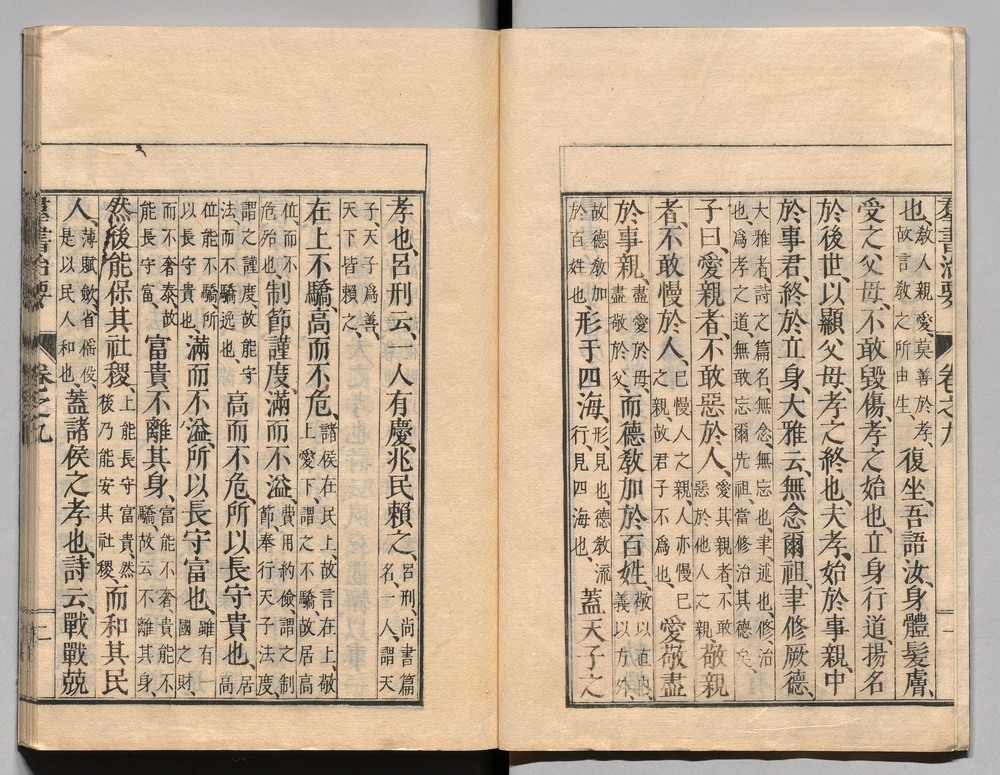 羣書治要 卷之九 一
也、教人親愛、莫善於孝、故言敎之所由生、復坐、吾語汝、身體髮膚、
受之父母、不敢毀傷、孝之始也、立身行道、揚名
於後世、以顯父母、孝之終也、夫孝、始於事親、中
於事君、終於立身、大雅云、無念爾祖、聿修厥德、
大雅者、詩之篇名、無念、無忘也、聿、述也、修治
也、爲孝之道、無敢忘爾先祖、當修治其德矣、
子曰、愛親者、不敢惡於人、愛其親者、不敢惡於他人之親、敬親
者、不敢慢於人、己慢人之親、人亦慢己之親、故君子不爲也、愛敬盡
於事親、盡愛於母、盡敬於父、而德敎加於百姓、敬以直内、義以方外、
故德敎加於百姓也、形于四海、形、見也、德敎流行、見四海也、蓋天子之
孝也、呂刑云、一人有慶、兆民賴之、呂刑、尚書篇名、一人、謂天
子、天子爲善、天下皆賴之、
在上不驕、高而不危、諸侯在民上、故言在上、敬上愛下、謂之不驕、故居高
位、而不危殆也、制節謹度、滿而不溢、費用約儉、謂之制節、奉行天子法度、
謂之謹度、故能守法、而不驕逸也、高而不危、所以長守貴也、居高
位能不驕、所以長守貴也、滿而不溢、所以長守富也、雖有一國之財、
而不奢泰、故能長守富、富貴不離其身、富能不奢、貴能不驕、故云不離其身、
然後能保其社稷、上能長守富貴、然後乃能安其社稷、而和其民
人、薄賦斂、省徭役、是以民人和也、蓋諸侯之孝也、詩云、戰戰兢
羣書治要 卷之九 二